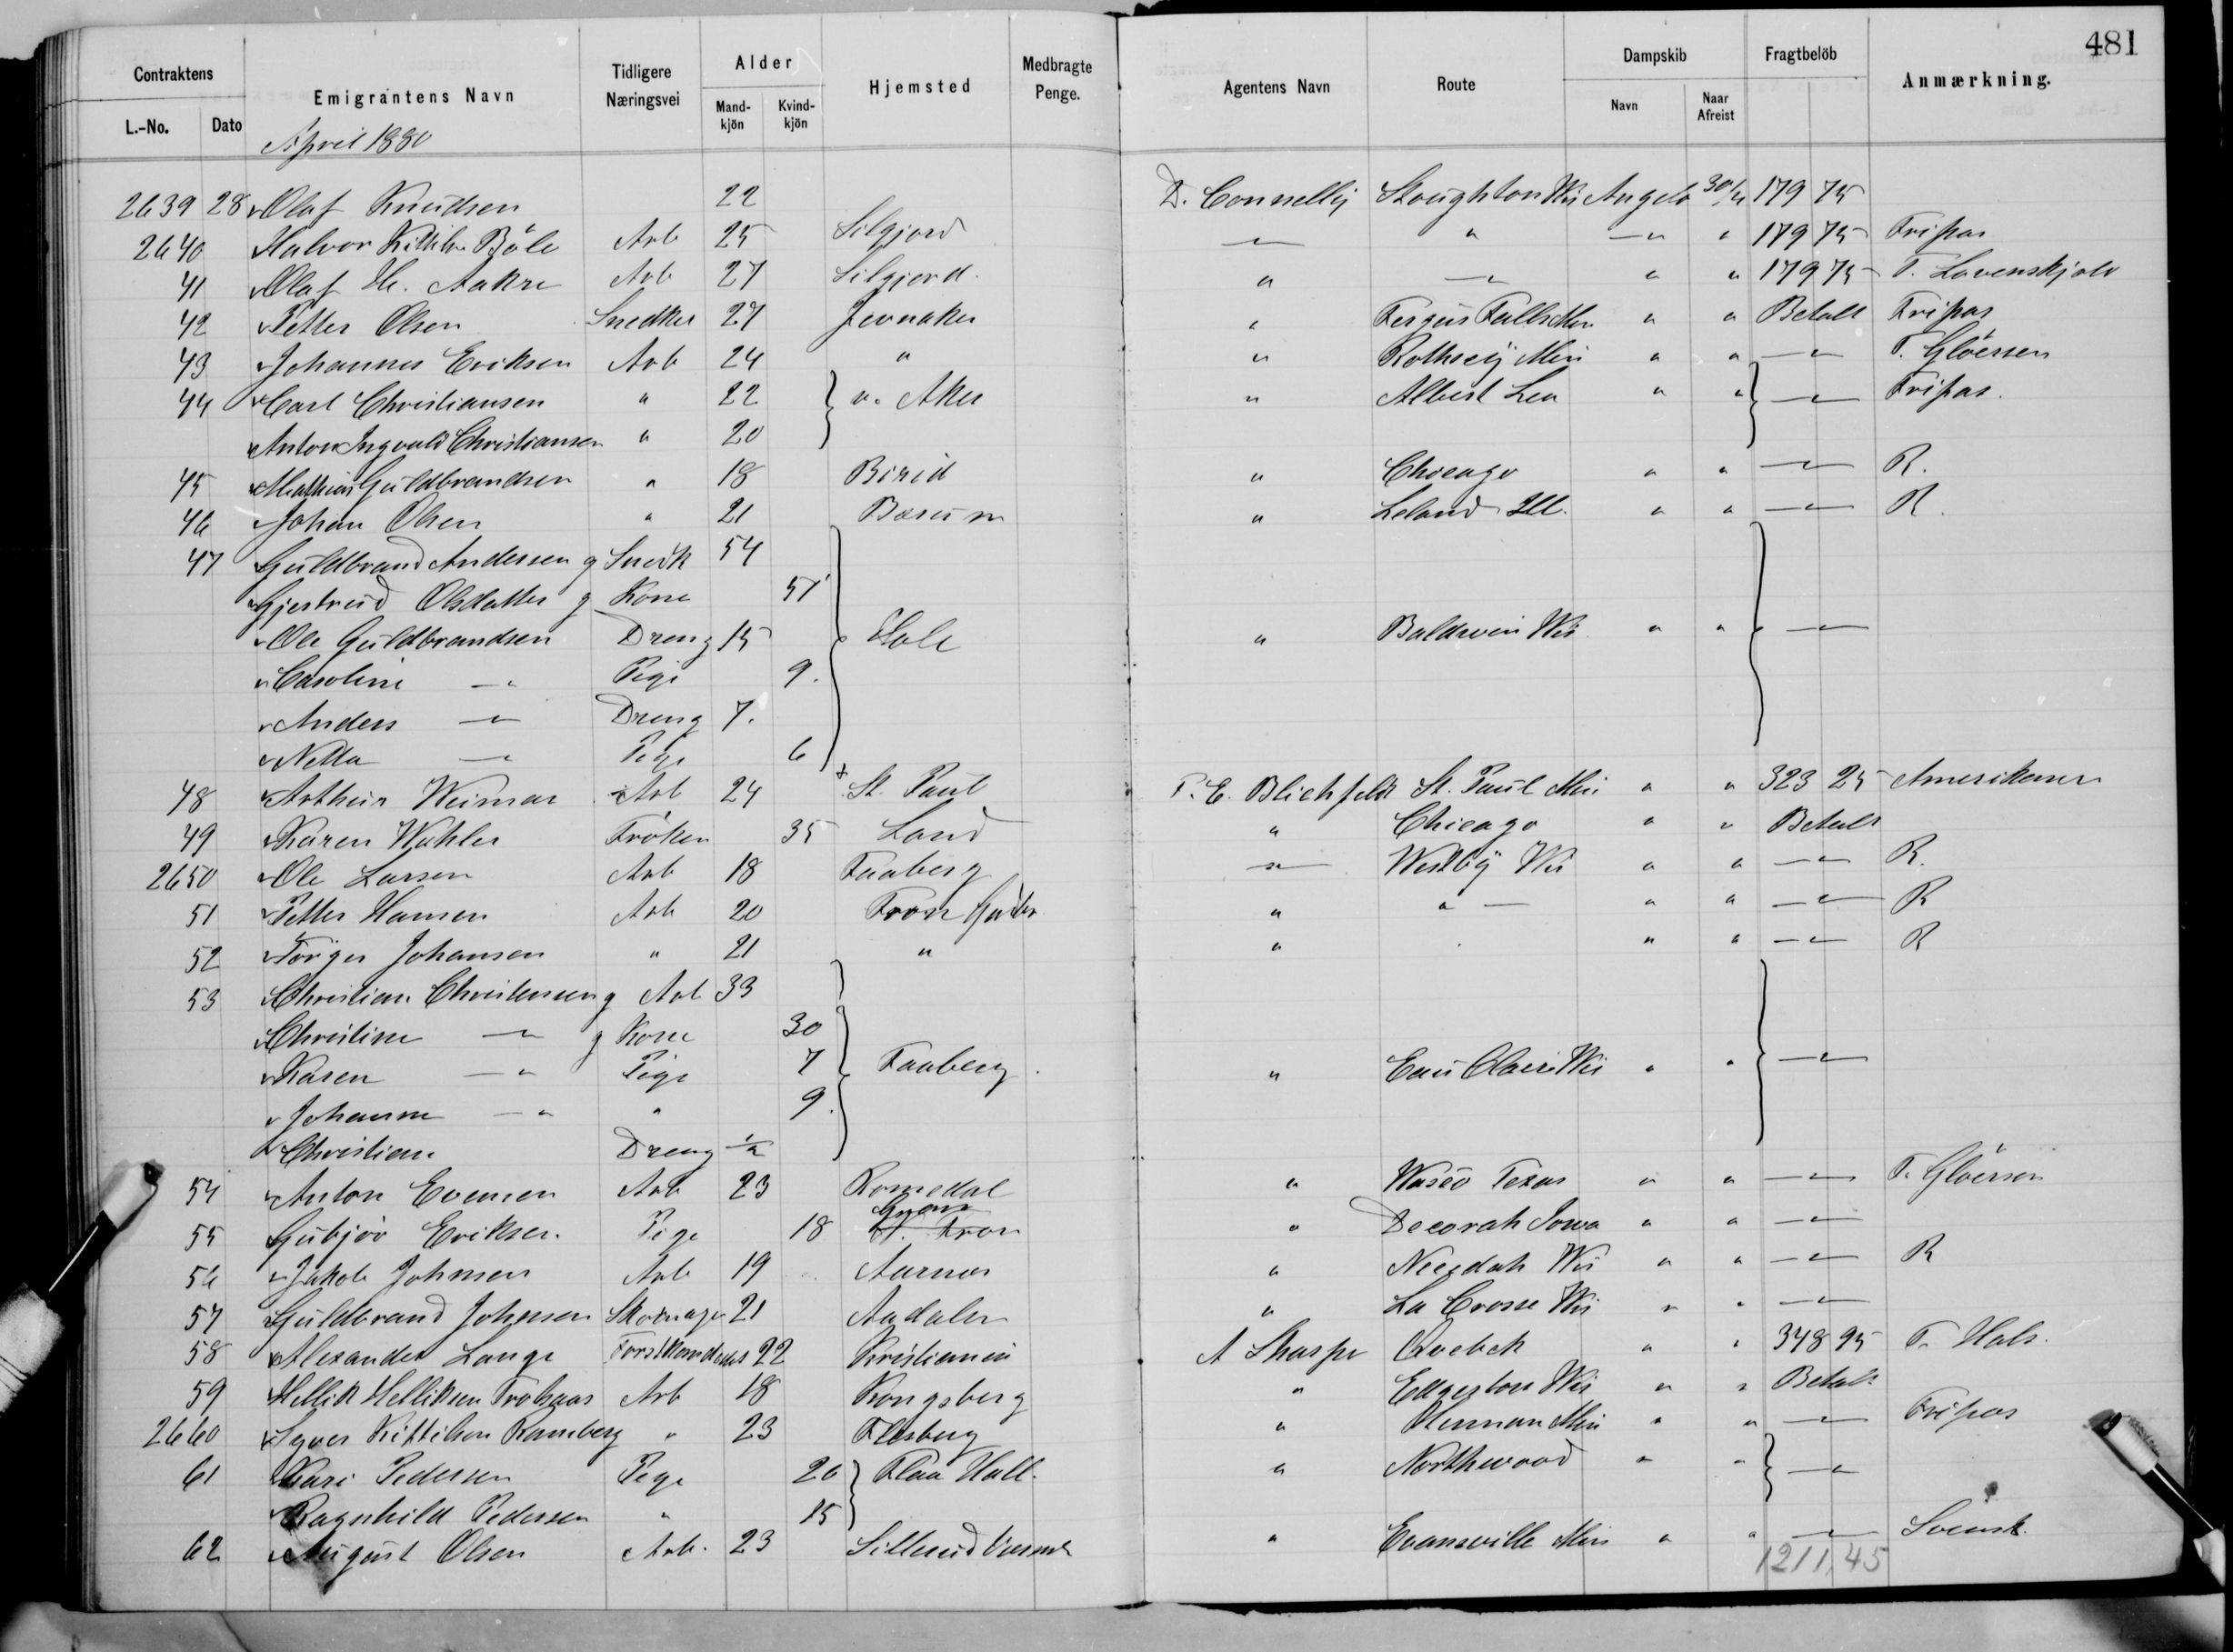 481
Contraktens | Emigrantens Navn | Tidligere Næringsvei | Alder | Hjemsted | Medbragte Penge. | Agentens Navn | Route | Dampskib | Fragtbelöb | Anmærkning.
L.-No. | Dato | Mand-kjön | Kvind-kjön | Navn | Naar Afreist
April 1880
2639 28 Olaf Knudsen 22 D. Connelly Stoughton Wis Angelo 30/4 179 75
2640 Halvor Kittilsen Böle Arb 25 Silgjord — " — " — " — " 179 75 Fripas
41 Olaf H. Aakre Arb 27 Silgjord. " — " — " " 179 75 T. Lovenskjold
42 Petter Olsen Snedker 27 Jevnaker " Fergus Falls Min " " Betalt Fripas
43 Johannes Eriksen Arb 24 " " Rothsey Min " " — " — T. Glöersen
44 Carl Christiansen " 22 v. Aker " Albert Lea " " — " — Fripas.
Anton Ingvald Christiansen " 20
45 Mathias Guldbrandsen " 18 Birid " Chicago " " — " — R.
46 Johan Olsen " 21 Bærum " Leland Ill. " " — " — R.
47 Guldbrand Andersen g Snedk 54
Gjertrud Olsdatter g Kone 51
Ole Guldbrandsen Dreng 15 Hole " Baldwin Wis " " — " —
Caroline — " Pige 9.
Anders — " — Dreng 7.
Netta — " — Pige 6
48 Arthur Weimar Arb 24 + St. Paul P. E. Blichfeldt St. Paul Min " " 323 25 Amerikaner
49 Karen Wahler Fröken 35 Land " Chicago " " Betalt
2650 Ole Larsen Arb 18 Faaberg — " — Westby Wis " " — " — R.
51 Petter Hansen Arb 20 Fron Gudbr " " — " " — " — R
52 Törger Johansen " 21 " " " " — " — R
53 Christian Christensen g Arb 33
Christine — " — g Kone 30
Karen — " Pige 7 Faaberg. " Eau Claire Wis " " — " —
Johanne — " " 9.
Christian Dreng 1/2
54 Anton Evensen Arb 23 Romedal " Waco Texas " " — " — T. Glöersen
55 Gubjör Eriksen Pige 18 Gran " Decorah Iowa " " — " —
56 Jakob Johnsen Arb 19 Aurnes " Necedah Wis " " — " — R
57 Guldbrand Johnsen Skomager 21 Aadalen " La Crosse Wis " " — " —
58 Alexander Lange Forstkandidat 22 Kristiania A Sharpe Quebek " " 348 95 T. Hals.
59 Hellik Helliksen Trohaas Arb 18 Kongsberg " Edgerton Wis " " Betalt
2660 Syver Kittilsen Ramberg " 23 Flesberg " Herman Min " " — " — Fripas
61 Kari Pedersen Pige 26 Flaa Hall. " Northwood " " — " —
Ragnhild Pedersen " 15
62 August Olsen Arb. 23 Sillerud Verml " Evansville Min " " — " — Svensk.
1211,45